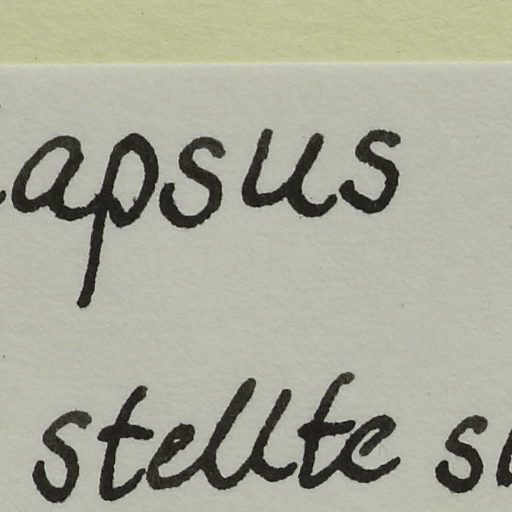 apsus
stellte